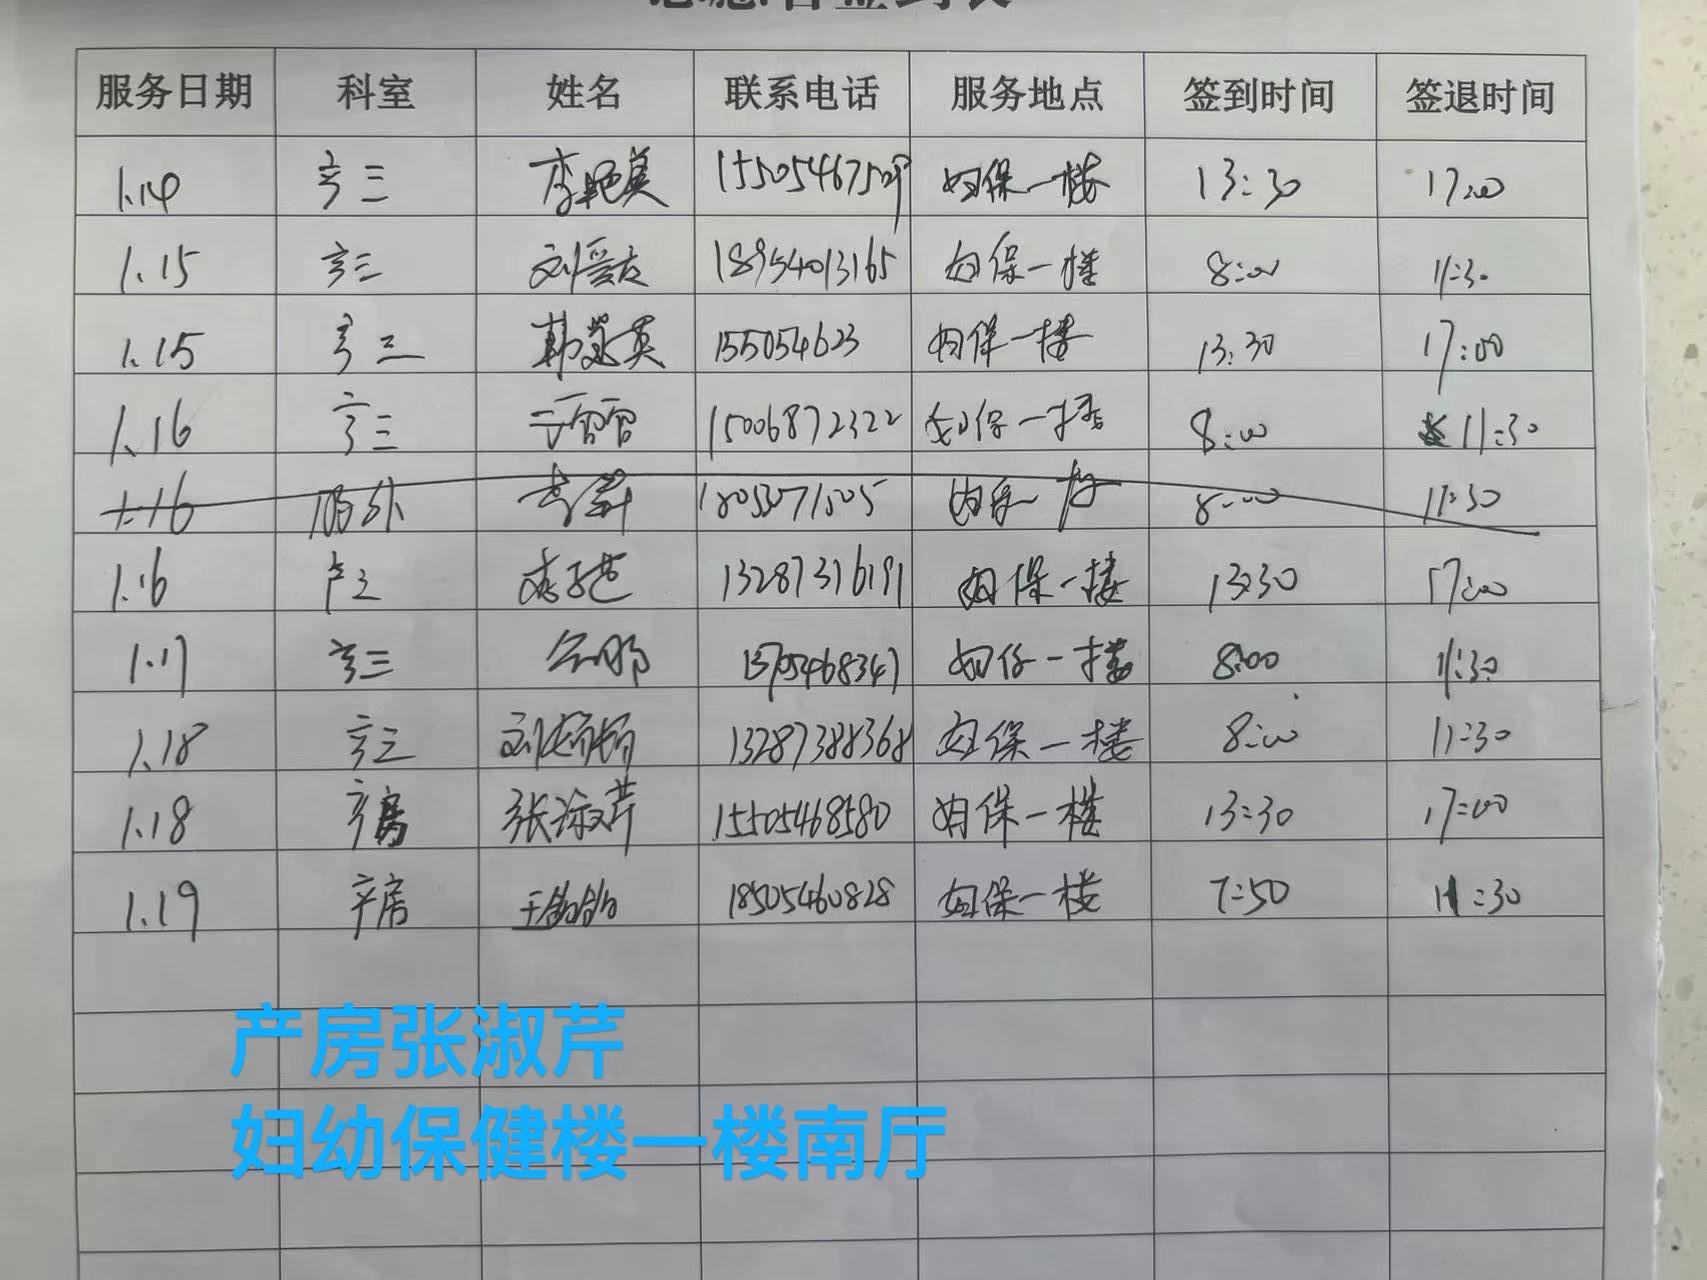 服务日期 科室 姓名 联系电话 服务地点 签到时间 签退时间
1.14 产三 李艳英 妇保一楼 13:30 17:00
1.15 产三 刘爱友 18954013165 妇保一楼 8:00 11:30
1.15 产三 韩莲英 155054623 妇保一楼 13:30 17:00
1.16 产三 15006872322 妇保一楼 8:00 11:30
1.16 妇保一楼 8:00 11:30
1.16 产三 13287316191 妇保一楼 13:30 17:00
1.17 产三 妇保一楼 8:00 11:30
1.18 产三 刘娇娇 13287388368 妇保一楼 8:00 11:30
1.18 产房 张淑芹 15505468580 妇保一楼 13:30 17:00
1.19 产房 18505460828 妇保一楼 7:50 11:30
产房张淑芹
妇幼保健楼一楼南厅